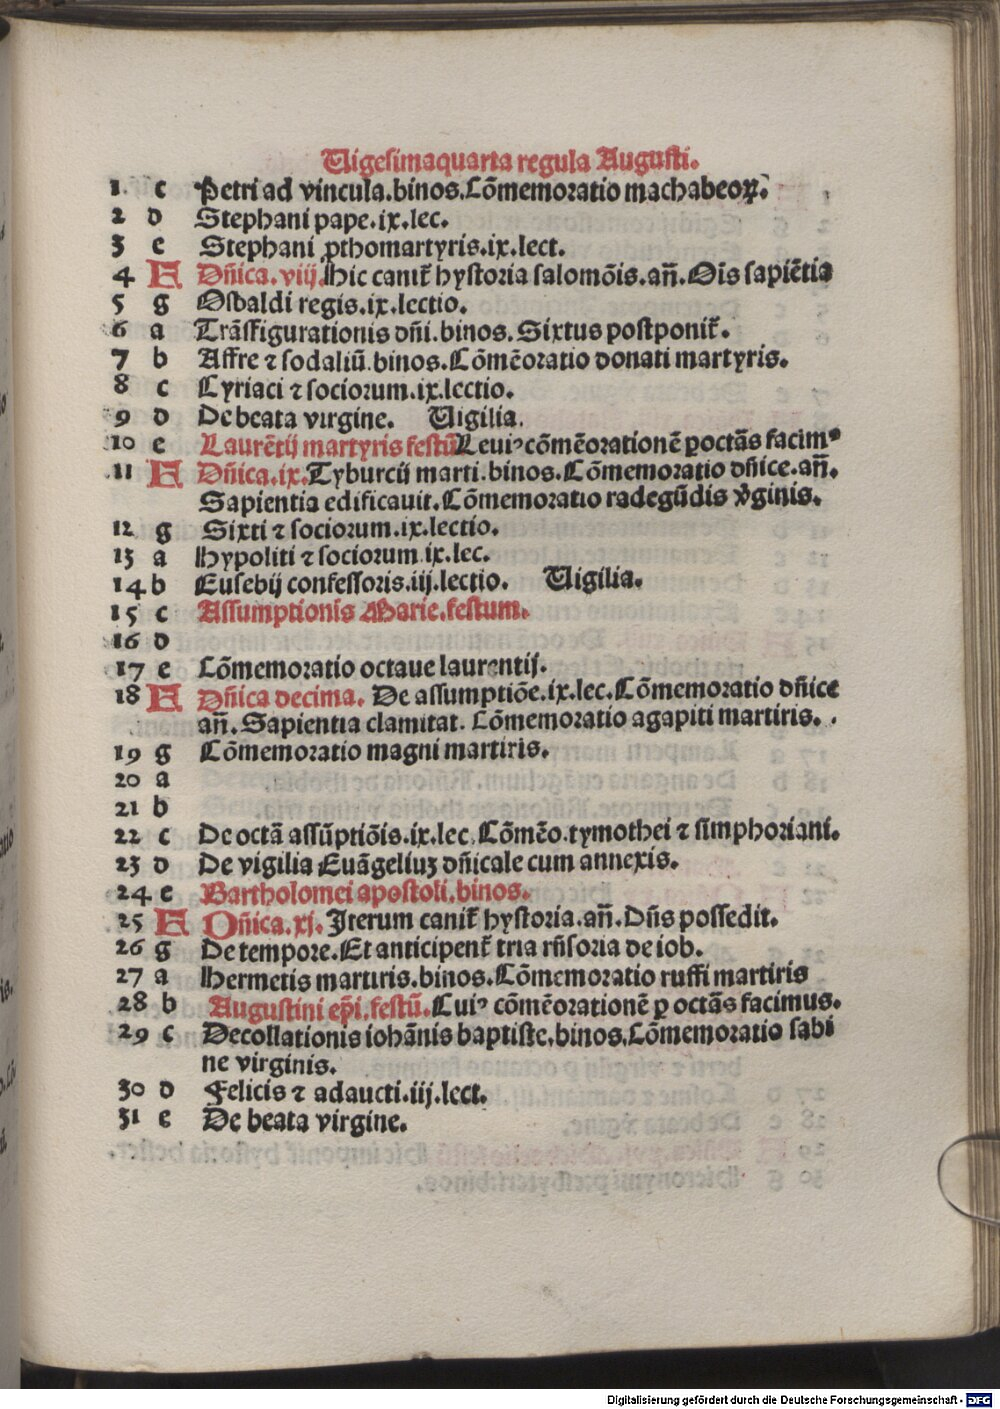 Uigesimaquarta regula Augusti.
1 c Petri ad vincula.binos.Cõmemoratio machabeoꝝ.
2 d Stephani pape.ix.lec.
3 e Stephani ꝓthomartyris.ix.lect.
4 A Dñica.viij.Hic canit᷑ hystoria salomõis.añ.Oĩs sapiẽtia
5 g Osbaldi regis.ix.lectio.
6 a Trãsfigurationis dñi.binos.Sixtus postponit᷑.
7 b Affre ⁊ sodaliũ.binos.Cõmẽoratio donati martyris.
8 c Cyriaci ⁊ sociorum.ix.lectio.
9 d De beata virgine. Uigilia.
10 e Laurẽtij martyris festũ Leuiꝰ cõmẽorationẽ ꝑ octãs facimꝰ
11 A Dñica.ix.Tyburcij marti.binos.Cõmemoratio dñice.añ.
Sapientia edificauit.Cõmemoratio radegũdis v̾ginis.
12 g Sixti ⁊ sociorum.ix.lectio.
13 a Hypoliti ⁊ sociorum.ix.lec.
14 b Eusebij confessoris.iij.lectio. Uigilia.
15 c Assumptionis Marie.festum.
16 d
17 e Cõmemoratio octaue laurentij.
18 A Dñica decima. De assumptiõe.ix.lec.Cõmemoratio dñice
añ.Sapientia clamitat. Cõmemoratio agapiti martiris.
19 g Cõmemoratio magni martiris.
20 a
21 b
22 c De octã assũptiõis.ix.lec.Cõmẽo.tymothei ⁊ simphoriani.
23 d De vigilia Euãgeliuꝫ dñicale cum annexis.
24 e Bartholomei apostoli.binos.
25 A Dñica.xj. Iterum canit᷑ hystoria.añ.Dñs possedit.
26 g De tempore.Et anticipent᷑ tria rñsoria de iob.
27 a Hermetis martiris.binos.Cõmemoratio ruffi martiris
28 b Augustini ep̃i.festũ.Cuiꝰ cõmẽorationẽ ꝑ octãs facimus.
29 c Decollationis iohãnis baptiste.binos.Cõmemoratio sabi
ne virginis.
30 d Felicis ⁊ adaucti.iij.lect.
31 e De beata virgine.
Digitalisierung gefördert durch die Deutsche Forschungsgemeinschaft - DFG